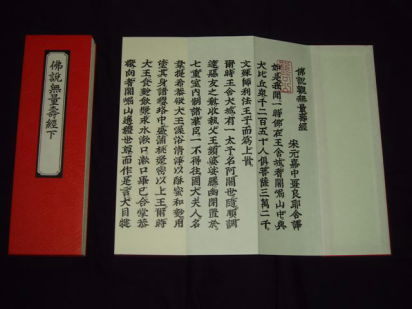 佛說無量壽經下
佛說觀無量壽經
宋元嘉中畺良耶舍譯
如是我聞一時佛在王舍城耆闍崛山中與
大比丘眾千二百五十人俱菩薩三萬二千
文殊師利法王子而為上首
爾時王舍大城有一太子名阿闍世隨順調
達惡友之教收執父王頻婆娑羅幽閉置於
七重室內制諸羣臣一不得往國大夫人名
韋提希恭敬大王澡浴清淨以酥蜜和麨用
塗其身諸瓔珞中盛蒲桃漿密以上王爾時
大王食麨飲漿求水漱口漱口畢已合掌恭
敬向耆闍崛山遙禮世尊而作是言大目犍